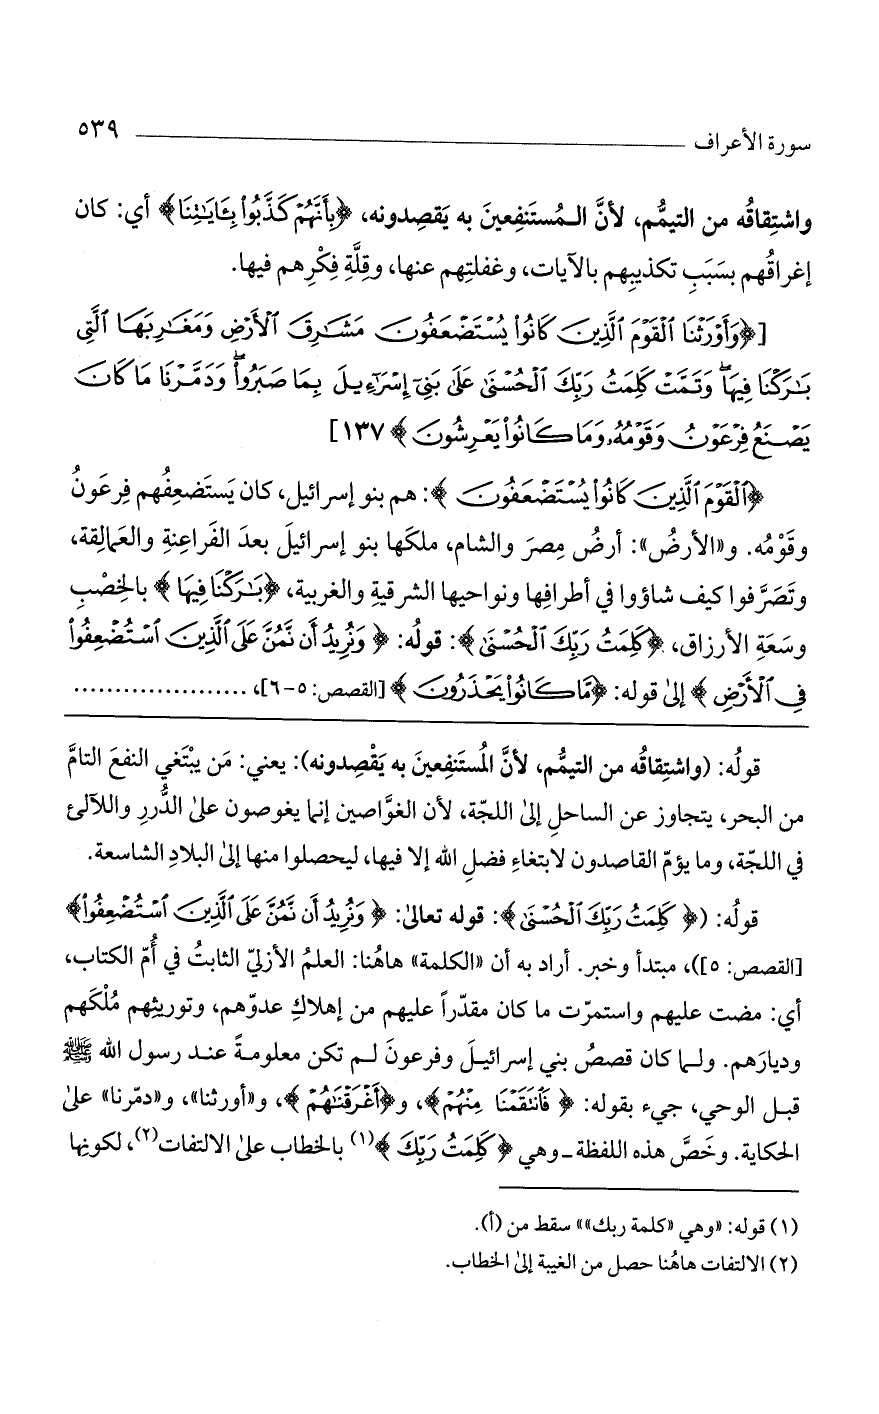 سورة الأعراف ٥٣٩
واشتِقاقُه من التيمُّم، لأنَّ المُستَنفِعينَ به يَقصِدونه، ﴿بِأَنَّهُمْ كَذَّبُواْ بِـَٔايَٰتِنَا﴾ أي: كان
إغراقُهم بسَبَبِ تكذيبِهم بالآيات، وغفلتِهم عنها، وقِلَّةِ فِكْرِهم فيها.
[﴿وَأَوْرَثْنَا ٱلْقَوْمَ ٱلَّذِينَ كَانُواْ يُسْتَضْعَفُونَ مَشَٰرِقَ ٱلْأَرْضِ وَمَغَٰرِبَهَا ٱلَّتِى
بَٰرَكْنَا فِيهَا ۖ وَتَمَّتْ كَلِمَتُ رَبِّكَ ٱلْحُسْنَىٰ عَلَىٰ بَنِىٓ إِسْرَٰٓءِيلَ بِمَا صَبَرُواْ ۖ وَدَمَّرْنَا مَا كَانَ
يَصْنَعُ فِرْعَوْنُ وَقَوْمُهُۥ وَمَا كَانُواْ يَعْرِشُونَ﴾ ١٣٧]
﴿ٱلْقَوْمَ ٱلَّذِينَ كَانُواْ يُسْتَضْعَفُونَ﴾: هم بنو إسرائيل، كان يَستَضعِفُهم فِرعَونُ
وقَوْمُه. و«الأرضُ»: أرضُ مِصرَ والشام، ملكَها بنو إسرائيلَ بعدَ الفَراعِنةِ والعَمالِقة،
وتَصَرَّفوا كيف شاؤوا في أطرافِها ونواحيها الشرقيةِ والغربية، ﴿بَٰرَكْنَا فِيهَا﴾ بالخِصْبِ
وسَعَةِ الأرزاق، ﴿كَلِمَتُ رَبِّكَ ٱلْحُسْنَىٰ﴾: قولُه: ﴿وَنُرِيدُ أَن نَّمُنَّ عَلَى ٱلَّذِينَ ٱسْتُضْعِفُواْ
فِى ٱلْأَرْضِ﴾ إلىٰ قوله: ﴿مَّا كَانُواْ يَحْذَرُونَ﴾ [القصص: ٥-٦]، .....................
قولُه: (واشتِقاقُه من التيمُّم، لأنَّ المُستَنفِعينَ به يَقْصِدونه): يعني: مَن يبْتَغي النفعَ التامَّ
من البحر، يتجاوز عن الساحلِ إلىٰ اللجّة، لأن الغوَّاصين إنما يغوصون علىٰ الدُّررِ واللآلئ
في اللجّة، وما يؤمّ القاصدون لابتغاءِ فضلِ الله إلا فيها، ليحصلوا منها إلىٰ البلادِ الشاسعة.
قولُه: (﴿كَلِمَتُ رَبِّكَ ٱلْحُسْنَىٰ﴾: قوله تعالىٰ: ﴿وَنُرِيدُ أَن نَّمُنَّ عَلَى ٱلَّذِينَ ٱسْتُضْعِفُواْ﴾
[القصص: ٥])، مبتدأ وخبر. أراد به أن «الكلمة» هاهُنا: العلمُ الأزليّ الثابتُ في أُمّ الكتاب،
أي: مضت عليهم واستمرّت ما كان مقدّراً عليهم من إهلاكِ عدوّهم، وتوريثِهم مُلْكَهم
وديارَهم. ولما كان قصصُ بني إسرائيلَ وفرعونَ لم تكن معلومةً عند رسول الله ﷺ
قبل الوحي، جيء بقوله: ﴿فَٱنتَقَمْنَا مِنْهُمْ﴾، و﴿أَغْرَقْنَٰهُمْ﴾، و«أورثنا»، و«دمّرنا» علىٰ
الحكاية. وخَصَّ هذه اللفظة -وهي ﴿كَلِمَتُ رَبِّكَ﴾(١) بالخطاب علىٰ الالتفات(٢)، لكونِها
(١) قوله: «وهي «كلمة ربك»» سقط من (أ).
(٢) الالتفات هاهُنا حصل من الغيبة إلىٰ الخطاب.